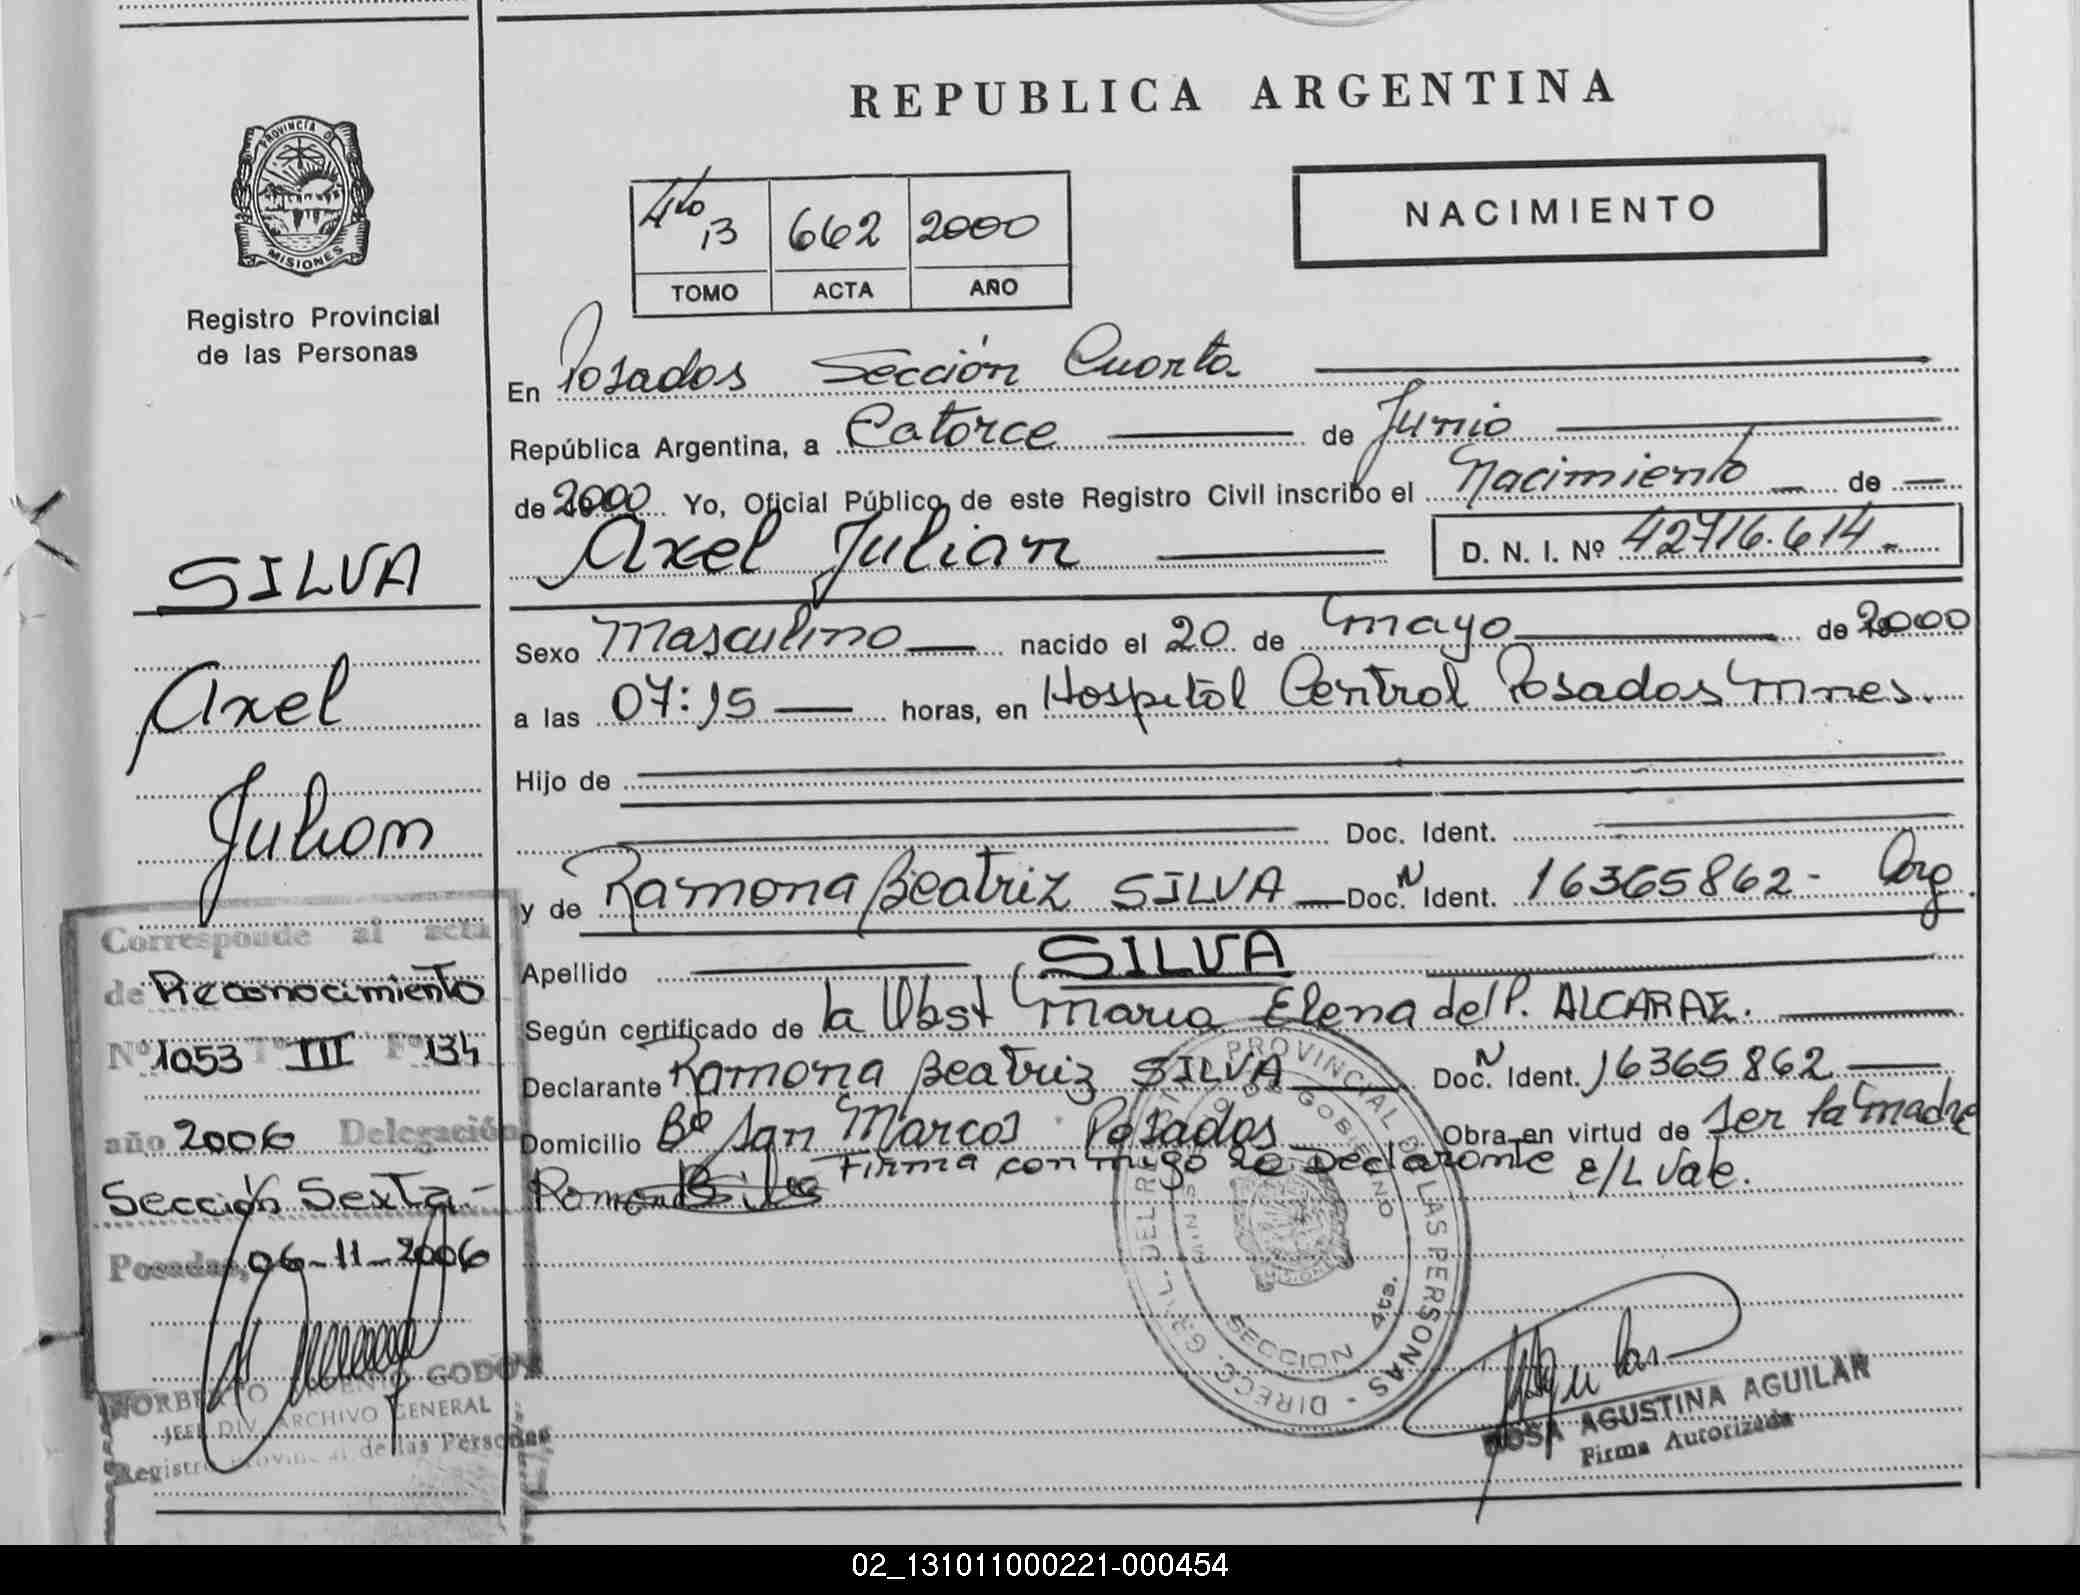 REPUBLICA ARGENTINA
PROVINCIA D
MISIONES
Registro Provincial
de las Personas
4to 13 662 2000
TOMO ACTA AÑO
NACIMIENTO
En Posadas Sección Cuarta
República Argentina, a Catorce de Junio
de 2000 Yo, Oficial Público, de este Registro Civil inscribo el Nacimiento de
Axel Julian D. N. I. Nº 42716.614.-
Sexo Masculino nacido el 20 de mayo de 2000
a las 07:15 horas, en Hospital Central Posadas Mnes.
Hijo de
Doc. Ident.
y de Ramona Beatriz SILVA Doc. N Ident. 16365862- Arg.
Apellido SILVA
Según certificado de la Obst Maria Elena del P. ALCARAZ.
Declarante Ramona Beatriz SILVA Doc. N Ident. 16365862
Domicilio Bº San Marcos Posadas Obra en virtud de ser la madre
Firma conmigo la Declarante E/L Vale.
SILVA
Axel
Julian
Corresponde al acta
de Reconocimiento
Nº 1053 Tº III Fº 134
año 2006 Delegación
Sección Sexta.-
Posadas, 06-11-2006
GODOY
JEFE DIV. ARCHIVO GENERAL
Registro Provincial de las Personas
DIRECC. GRAL. DEL REG. PROVINCIAL DE LAS PERSONAS
MINISTERIO DE GOBIERNO
SECCION 4ta.
ROSA AGUSTINA AGUILAR
Firma Autorizada
02_131011000221-000454